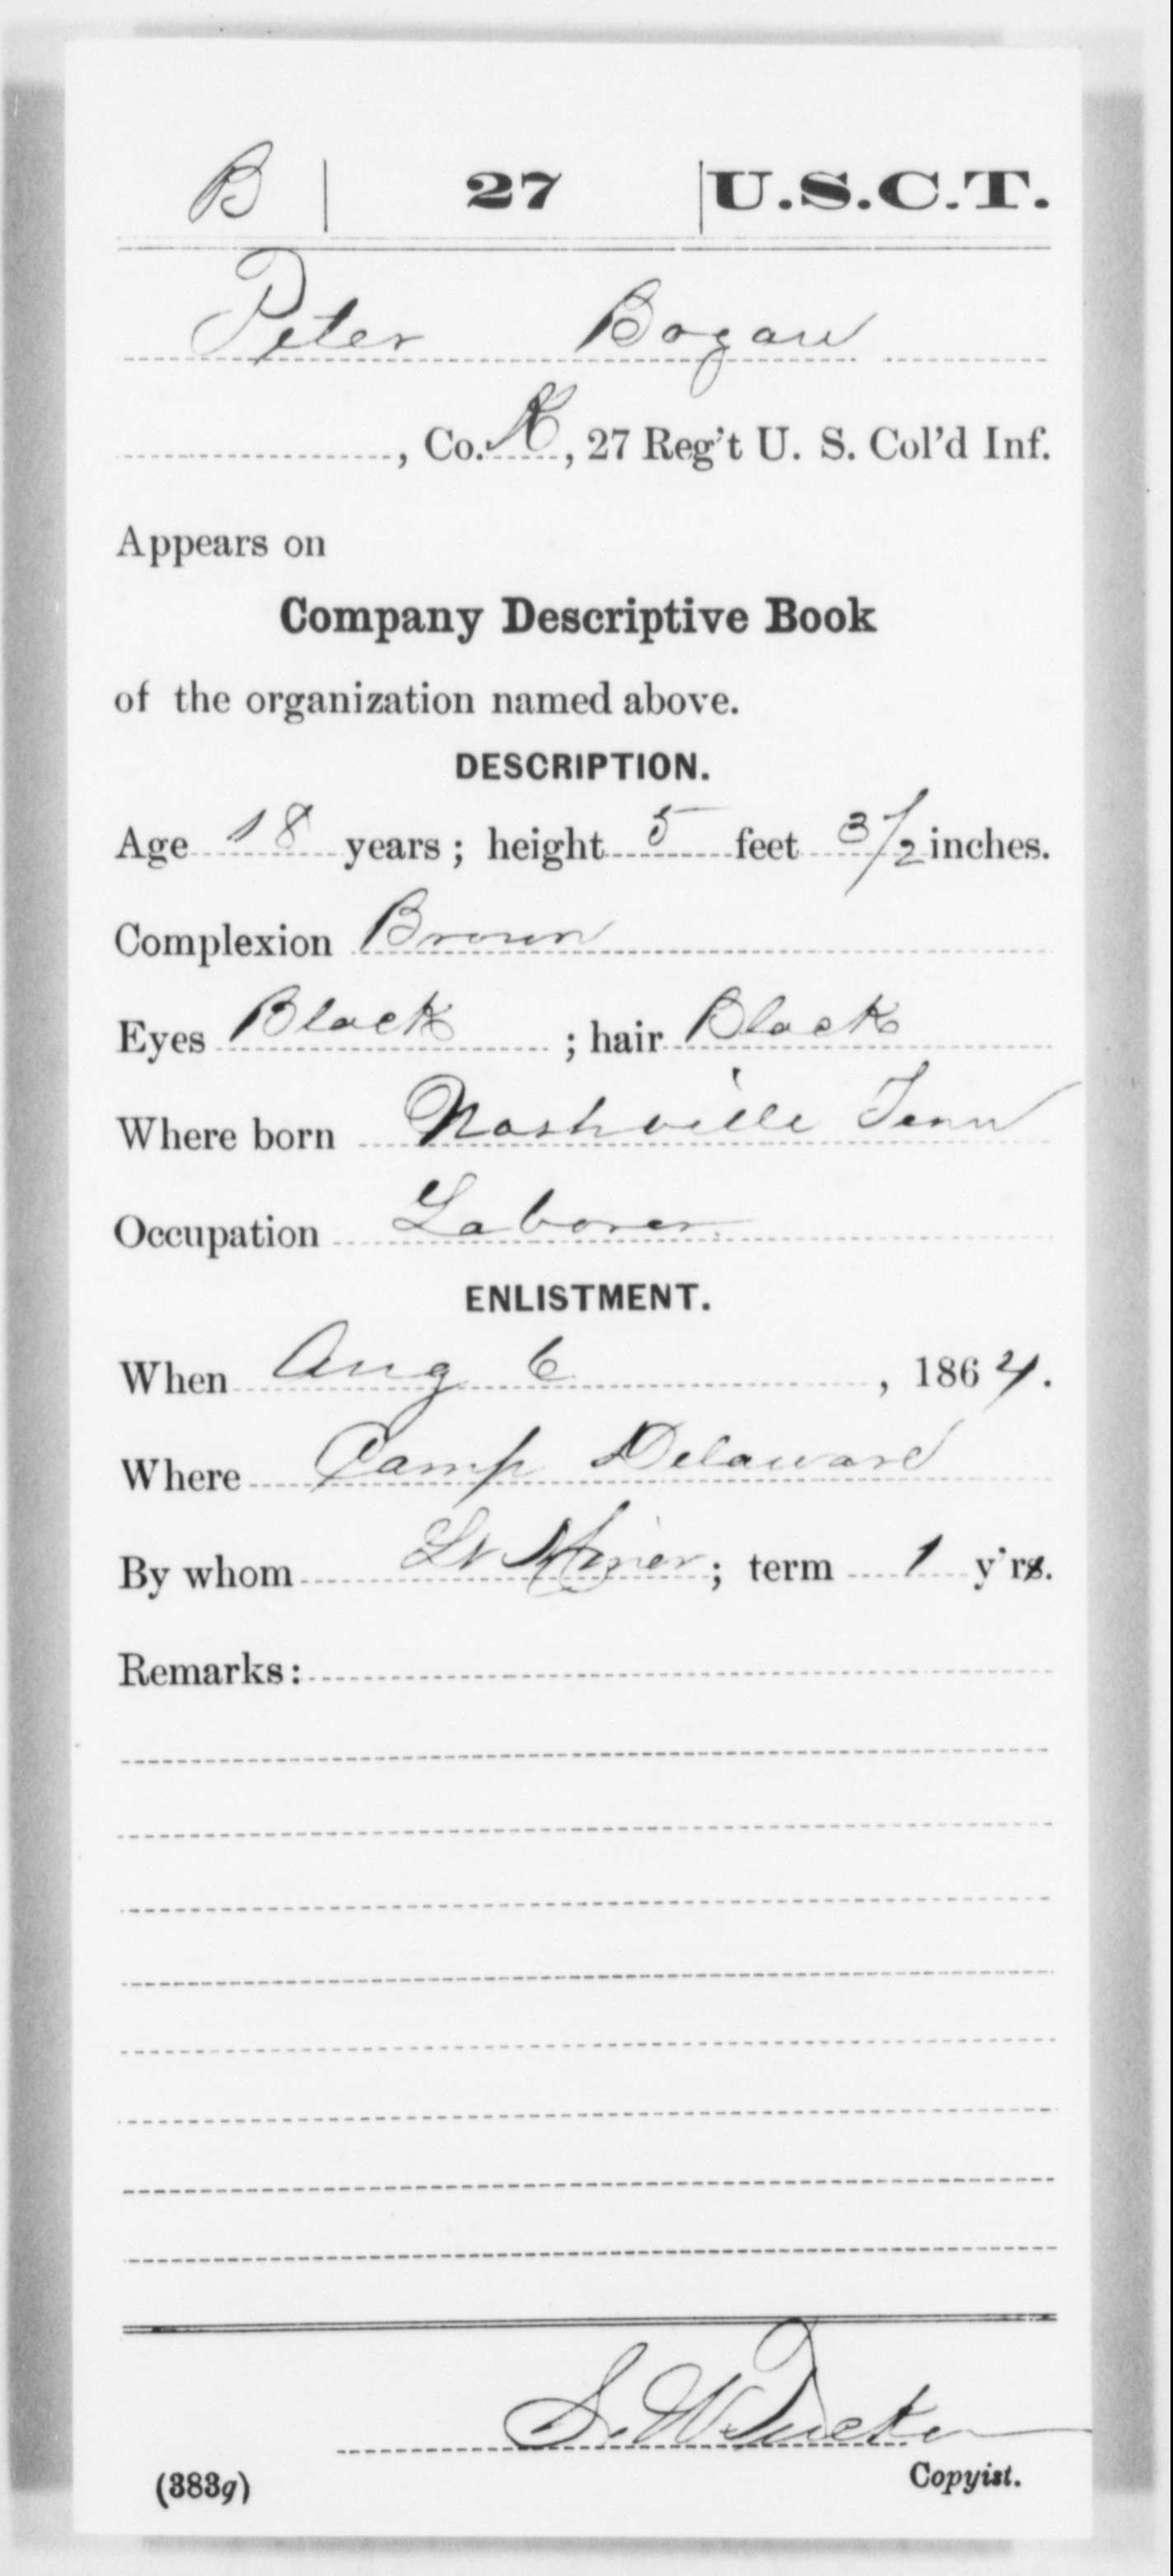 B | 27 | U.S.C.T.
Peter Bogan
, Co. K, 27 Reg't U. S. Col'd Inf.
Appears on
Company Descriptive Book
of the organization named above.
DESCRIPTION.
Age 18 years; height 5 feet 3 1/2 inches.
Complexion Brown
Eyes Black ; hair Black
Where born Nashville Tenn
Occupation Laborer
ENLISTMENT.
When Aug 6, 1864.
Where Camp Delaware
By whom Lt Miner; term 1 y'rs.
Remarks:
S. W. Tucker
Copyist.
(383g)